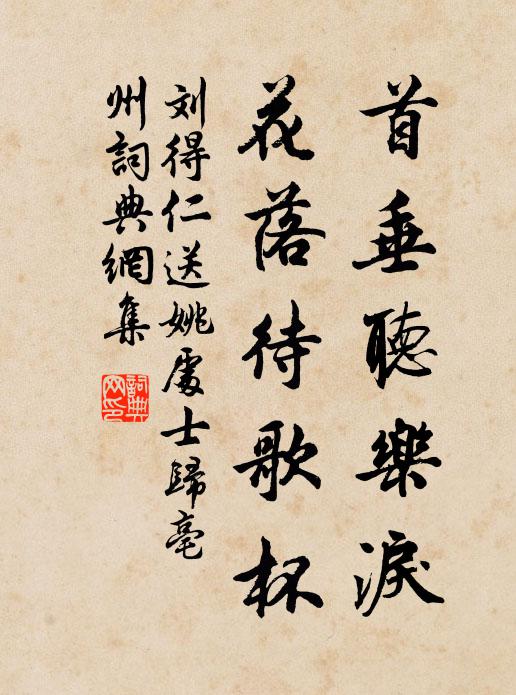 首垂聽樂淚
花落待歌杯
刘得仁送姚處士歸亳
州詞典網集
詞典网印